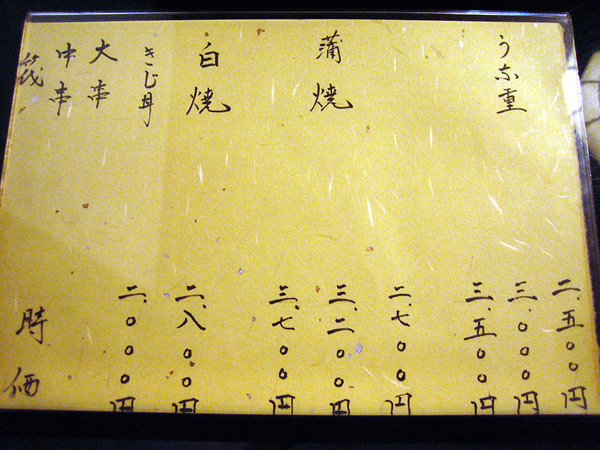 二、五〇〇円
うな重
三、〇〇〇円
三、五〇〇円
二、七〇〇円
蒲焼
三、二〇〇円
三、七〇〇円
白焼
二、八〇〇円
きじ丼
二、〇〇〇円
大串
中串
筏
時価